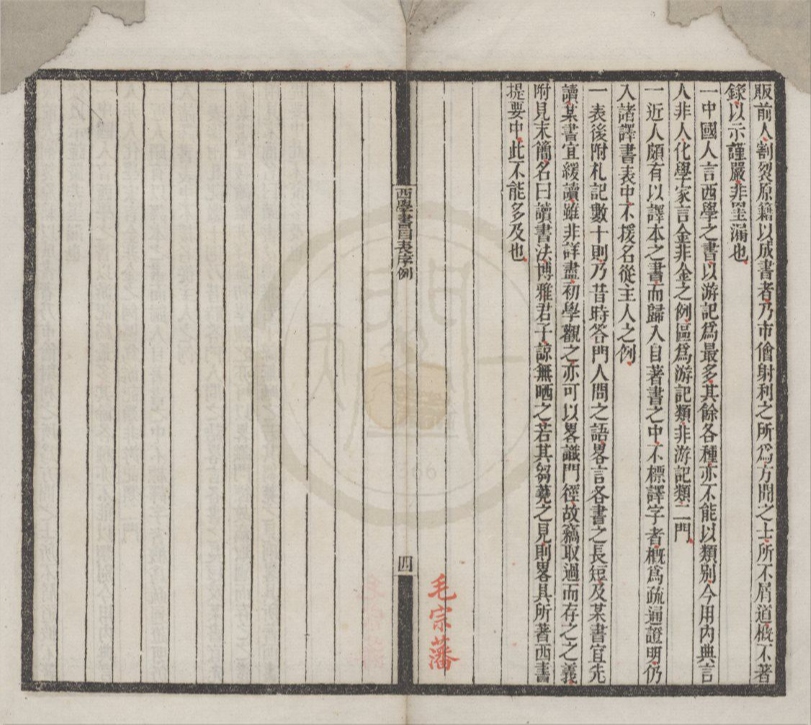 版前人割裂原籍以成書者乃市儈射利之所爲方聞之士所不居道概不著
錄以示謹嚴非罣漏也
一中國人言西學之書以游記爲最多其餘各種亦不能以類別今用內典言
人非人化學家言金非金之例區爲游記類非游記類二門
一近人頗有以譯本之書而歸入自著書之中不標譯字者概爲疏通證明仍
入諸譯書表中不援名從主人之例
一表後附札記數十則乃昔時答門人問之語畧言各書之長短及某書宜先
讀某書宜緩讀雖非詳盡初學觀之亦可以畧識門徑故竊取過而存之之義
附見末簡名曰讀書法博雅君子諒無哂之若其芻蕘之見則畧具所著西書
提要中此不能多及也
毛宗藩
西學書目表序例
四